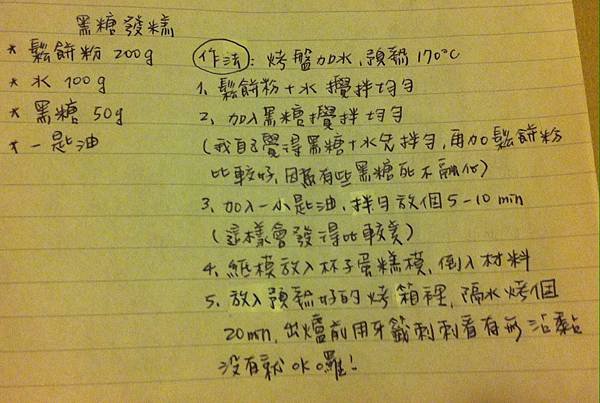 黑糖發糕
* 鬆餅粉 200g
* 水 100g
* 黑糖 50g
* 一匙油
作法: 烤盤加水, 預熱 170°C
1. 鬆餅粉+水 攪拌均勻
2. 加入黑糖攪拌均勻
(我自己覺得黑糖+水先拌勻, 再加鬆餅粉
比較好, 因為有些黑糖死不融化)
3. 加入一小匙油, 拌勻放個5-10 min
(這樣會發得比較美)
4. 紙模放入杯子蛋糕模, 倒入材料
5. 放入預熱好的烤箱裡, 隔水烤個
20min, 出爐前用牙籤刺刺看有無沾黏
沒有就OK囉!